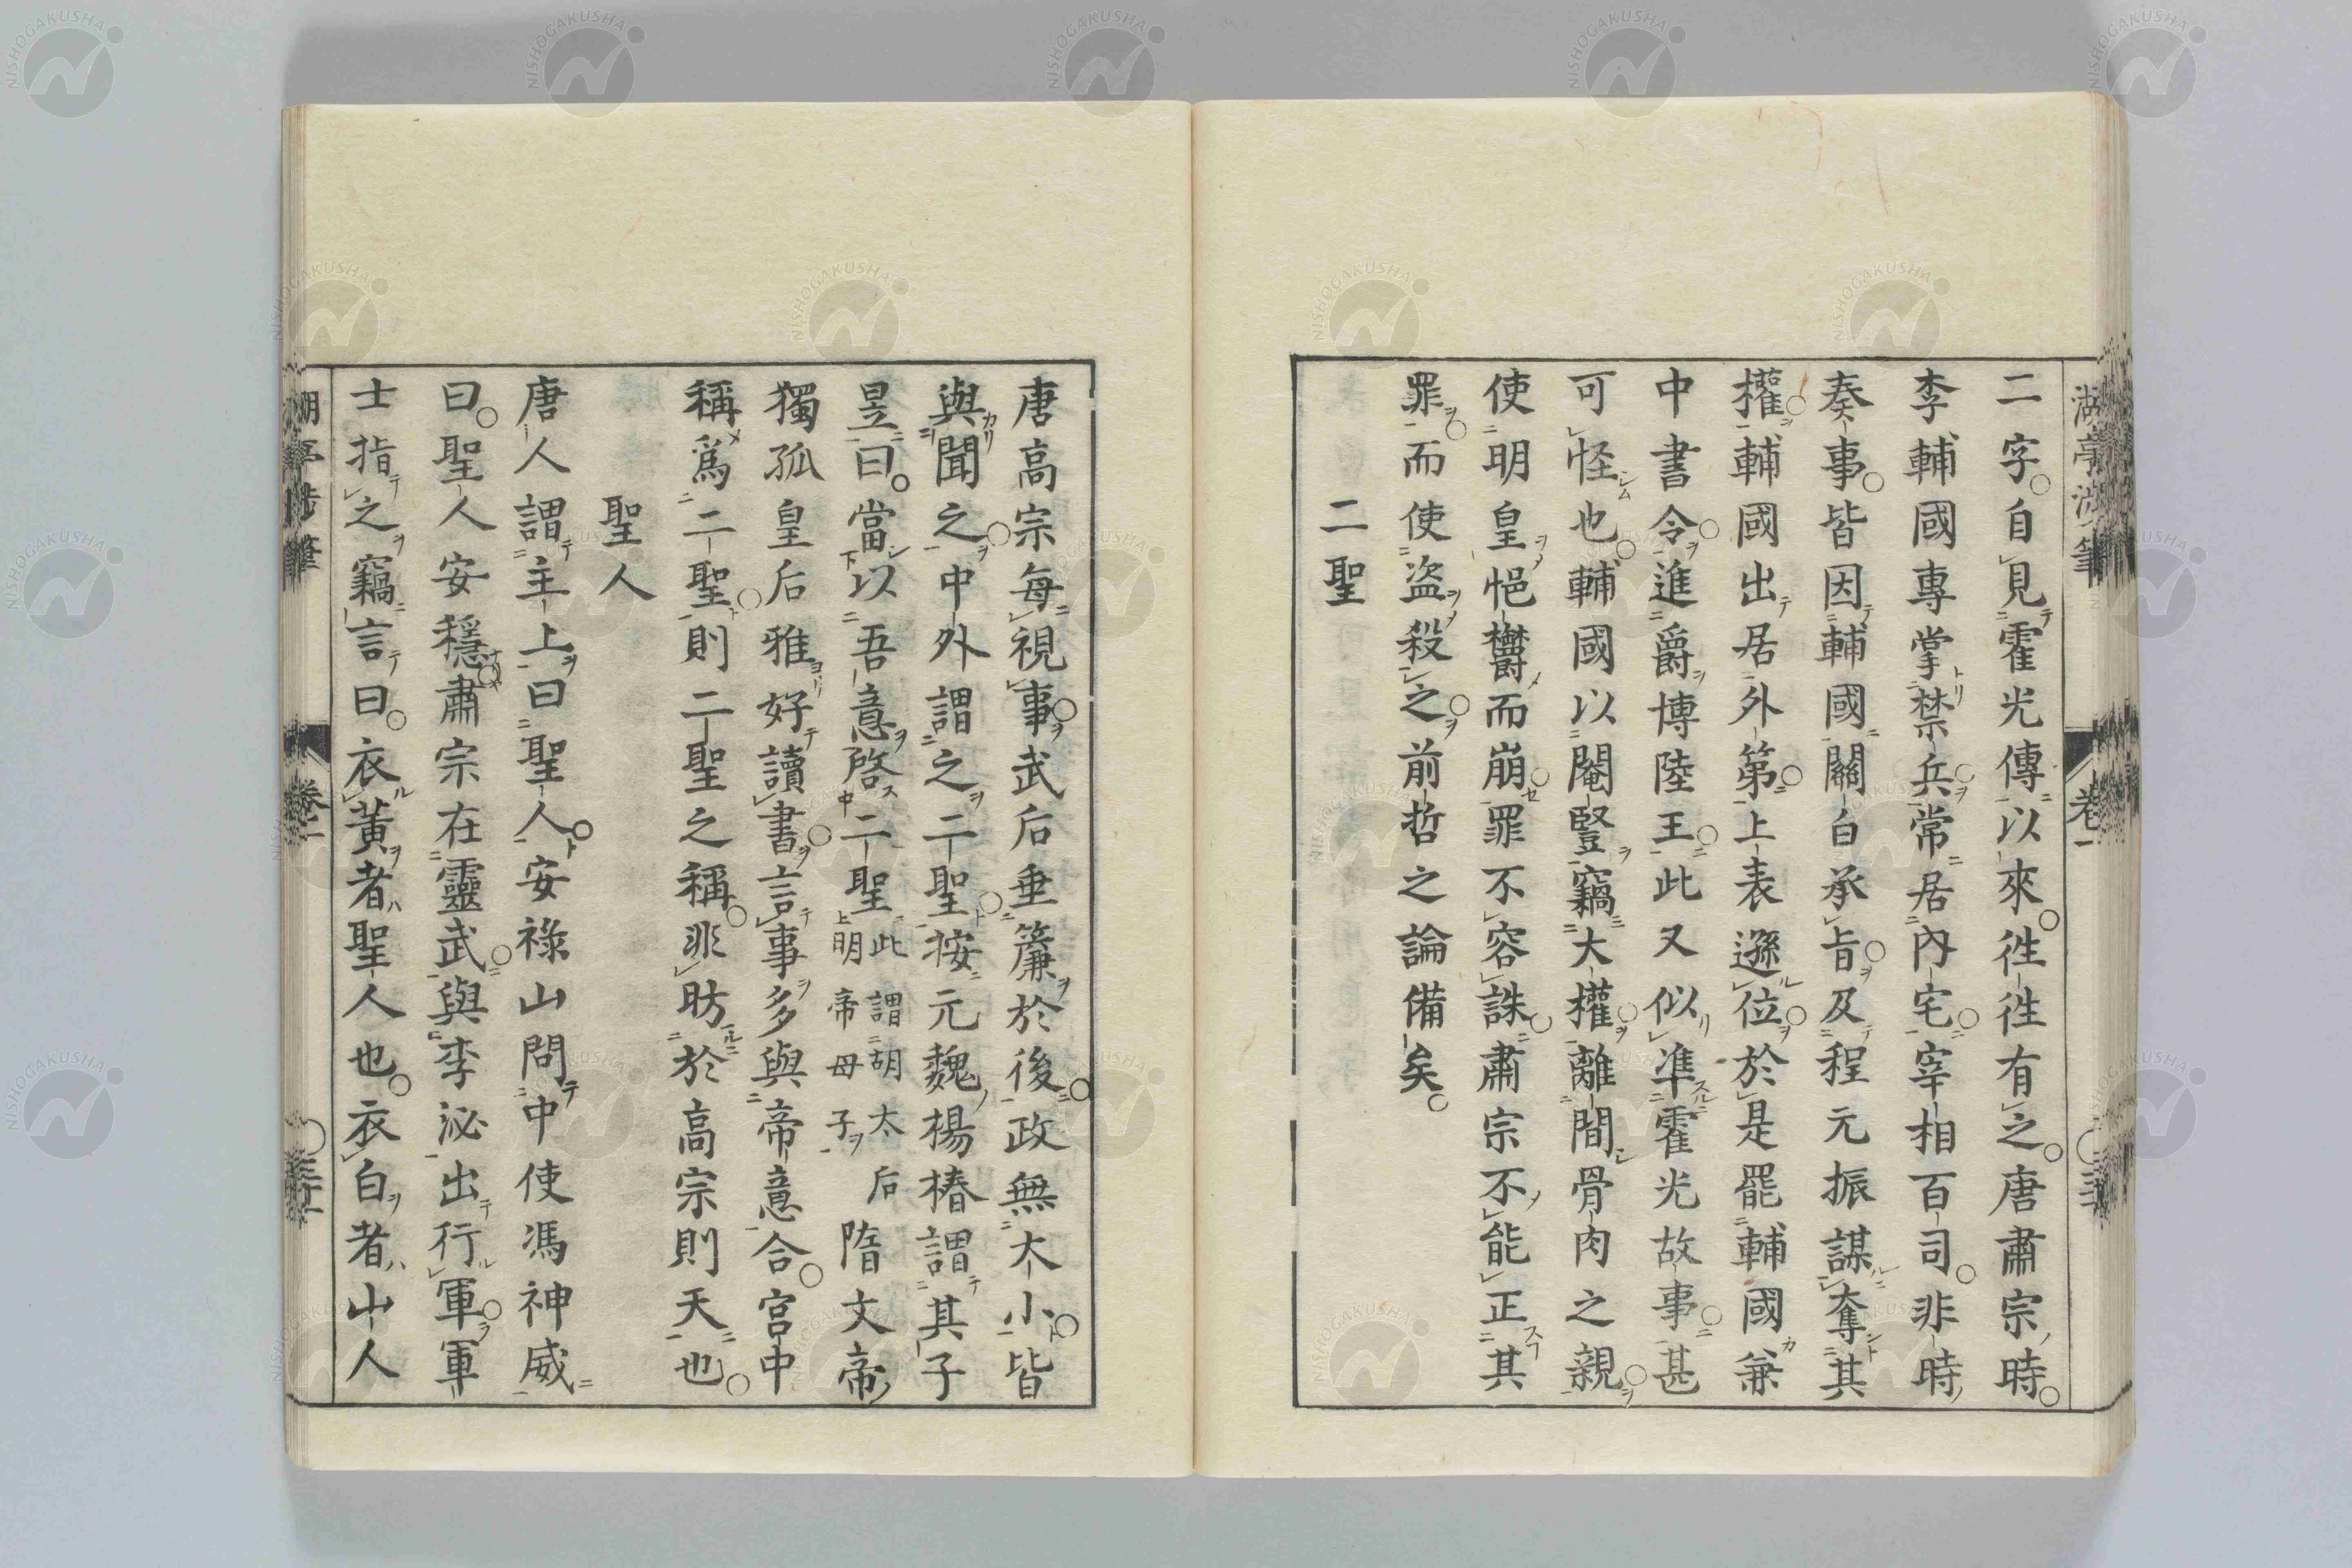 二字自見霍光傳以來徃徃有之唐肅宗時
李輔國專掌禁兵常居內宅宰相百司非時
奏事皆因輔國關白承旨及程元振謀奪其
權輔國出居外第上表遜位於是罷輔國兼
中書令進爵博陸王此又似準霍光故事甚
可怪也輔國以閹豎竊大權離間骨肉之親
使明皇悒欝而崩罪不容誅肅宗不能正其
罪而使盗殺之前哲之論備矣
二聖
唐高宗每視事武后垂簾於後政無大小皆
與聞之中外謂之二聖按元魏楊椿謂其子
昱曰當以吾意啓二聖此謂胡太后明帝母子隋文帝
獨孤皇后雅好讀書言事多與帝意合宮中
稱爲二聖則二聖之稱非昉於高宗則天也
聖人
唐人謂主上曰聖人安祿山問中使馮神威
曰聖人安穩肅宗在靈武與李泌出行軍軍
士指之竊言曰衣黃者聖人也衣白者山人
卷二
NISHOGAKUSHA